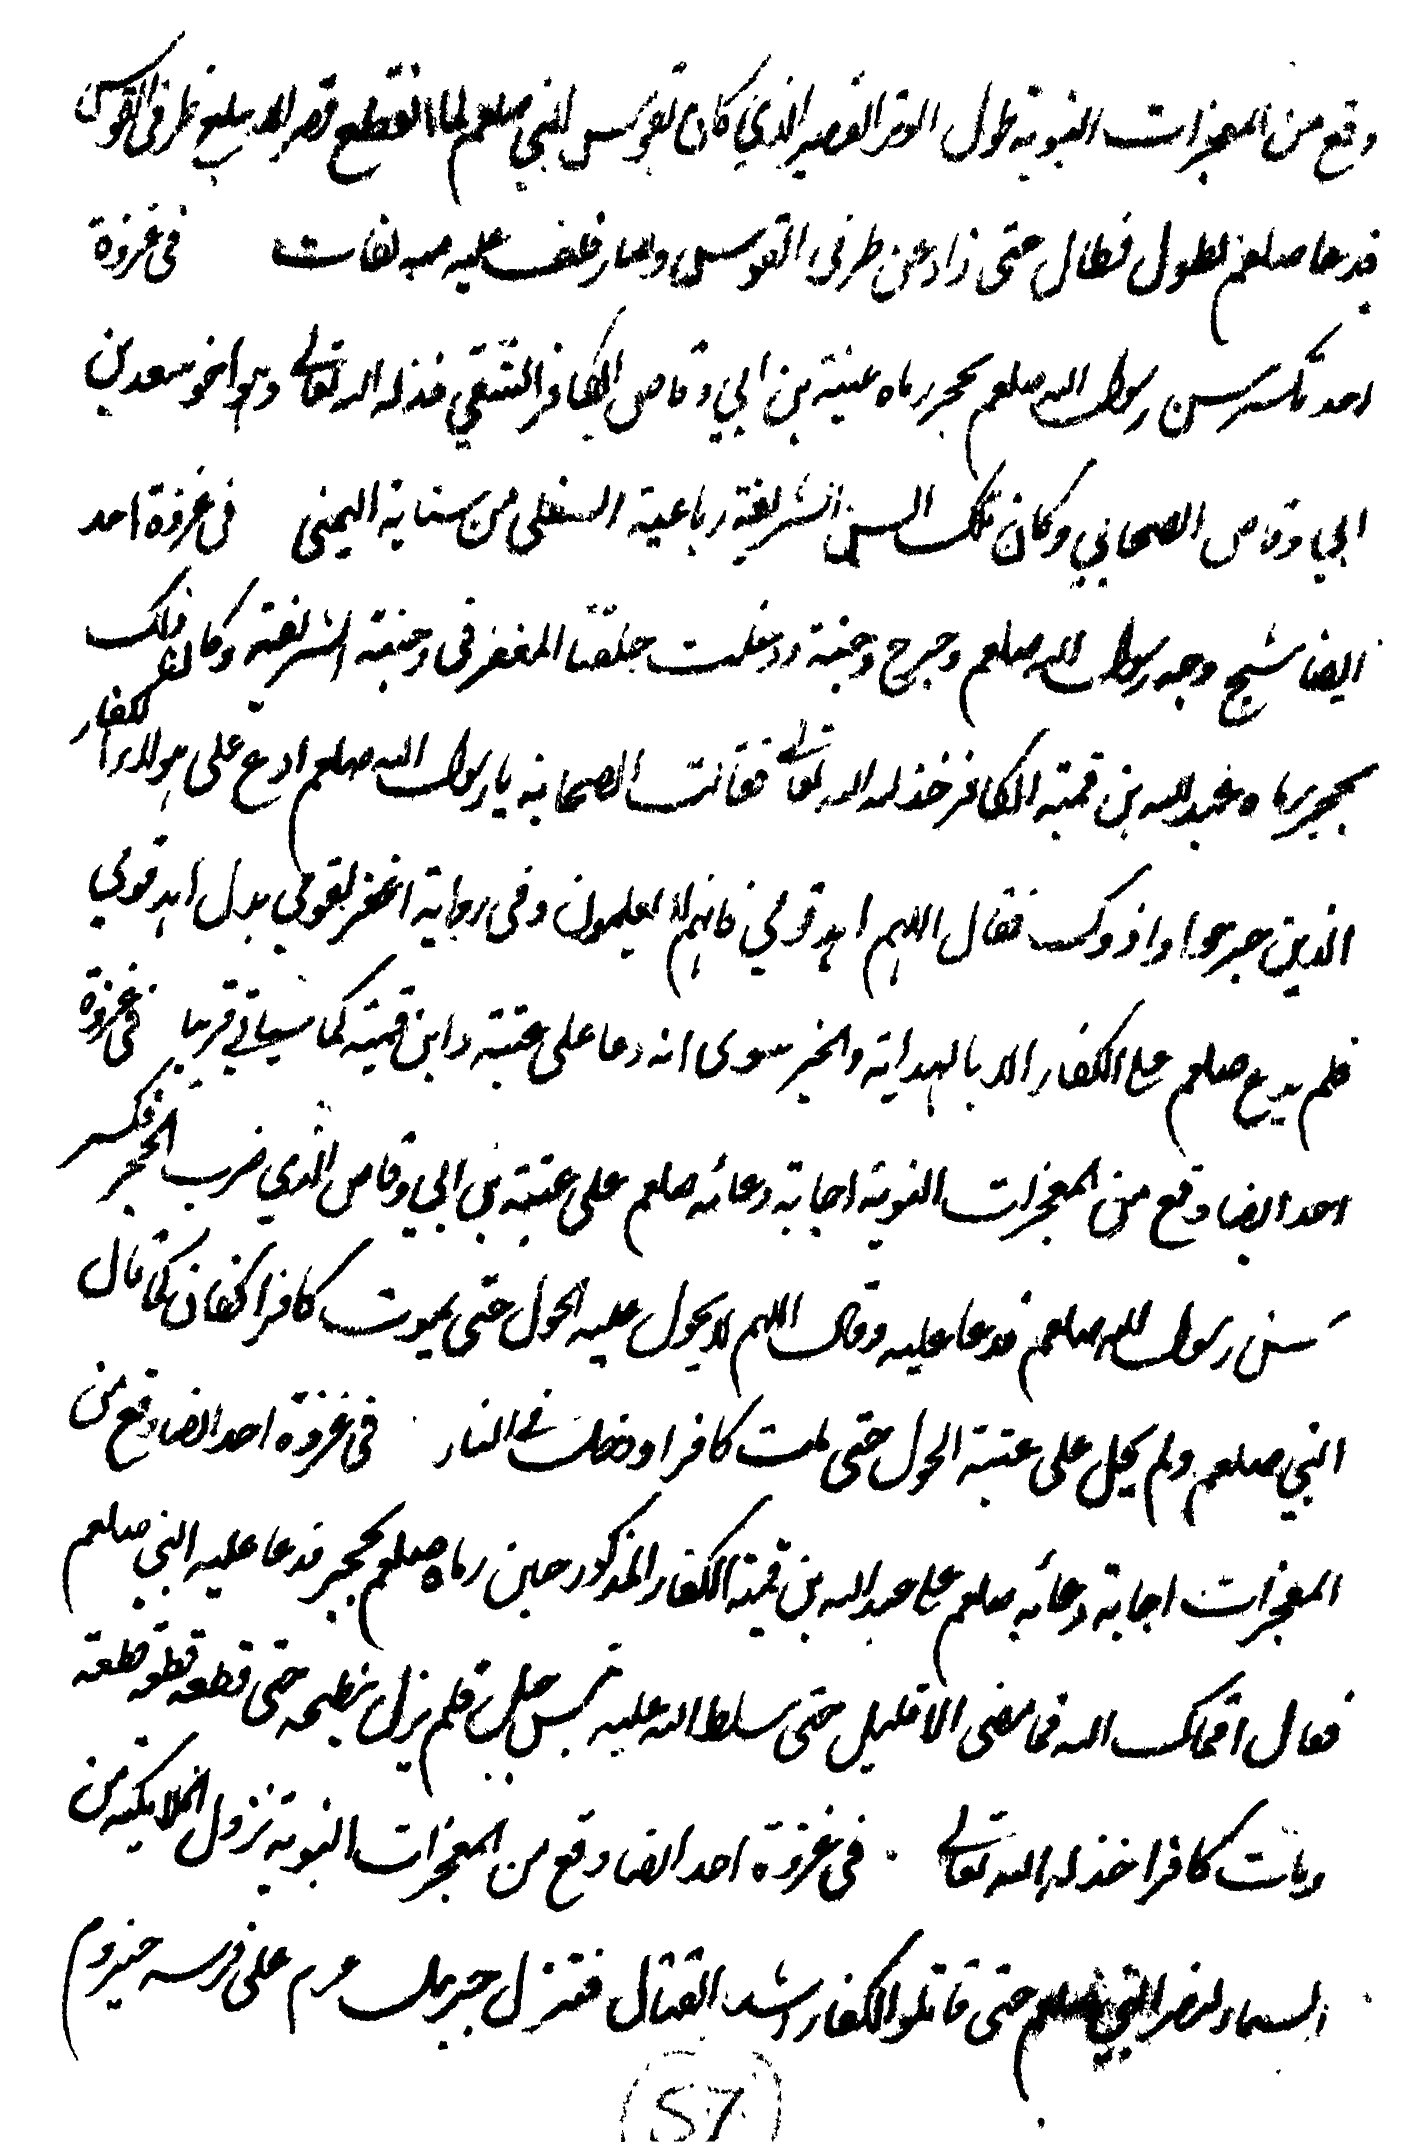 وقع من المعجزات النبوية طول الوتر القصير الذي كان لقوس النبي صلعم لما انقطع قصر لا يبلغ طرفي القوس
فدعا صلعم لطول فطال حتى زاد عن طرفي القوس وصار فلف عليه منه لفات في غزوة
احد تكسر سن رسول الله صلعم بحجر رماه عتبة بن ابي وقاص الكافر الشقي خذله الله تعالى وهو اخو سعد بن
ابي وقاص الصحابي وكان تلك السن الشريفة رباعية السفلى من سناية اليمنى في غزوة احد
ايضا شج وجه رسول الله صلعم وجرح وجنة ودخلت حلقتا المغفر في وجنته الشريفة وكان ذلك
بحجر رماه عبد الله بن قمئة الكافر خذله الله تعالى فقالت الصحابة يا رسول الله صلعم ادع على هولاء الكفار
الذين جرحوا واذوك فقال اللهم اهد قومي فانهم لا يعلمون وفي رواية اغفر لقومي بدل اهد قومي
فلم يدع صلعم على الكفار الا بالهداية والخير سوى انه دعا على عتبة وابن قمئة كما سياتي قريبا في غزوة
احد ايضا وقع من المعجزات النبوية اجابة دعائه صلعم على عتبة بن ابي وقاص الذي ضرب الحجر فكسر
سن رسول الله صلعم فدعا عليه وقال اللهم لا يحول عليه الحول حتى يموت كافرا فكان كما قال
النبي صلعم ولم يحل على عتبة الحول حتى مات كافرا ودخل في النار في غزوة احد ايضا وقع من
المعجزات اجابة دعائه صلعم على عبد الله بن قمئة الكفار المذكور حين رماه صلعم بحجر فدعا عليه النبي صلعم
فقال اقماك الله فما مضى الا قليل حتى سلط الله عليه تيس جبل فلم يزل ينطحه حتى قطعه قطعة قطعة
ومات كافرا خذله الله تعالى في غزوة احد ايضا وقع من المعجزات النبوية نزول الملايكة من
السماء لنصر النبي صلعم حتى قاتلوا الكفار اشد القتال فنزل جبريل عرم على فرسه حيزوم
57